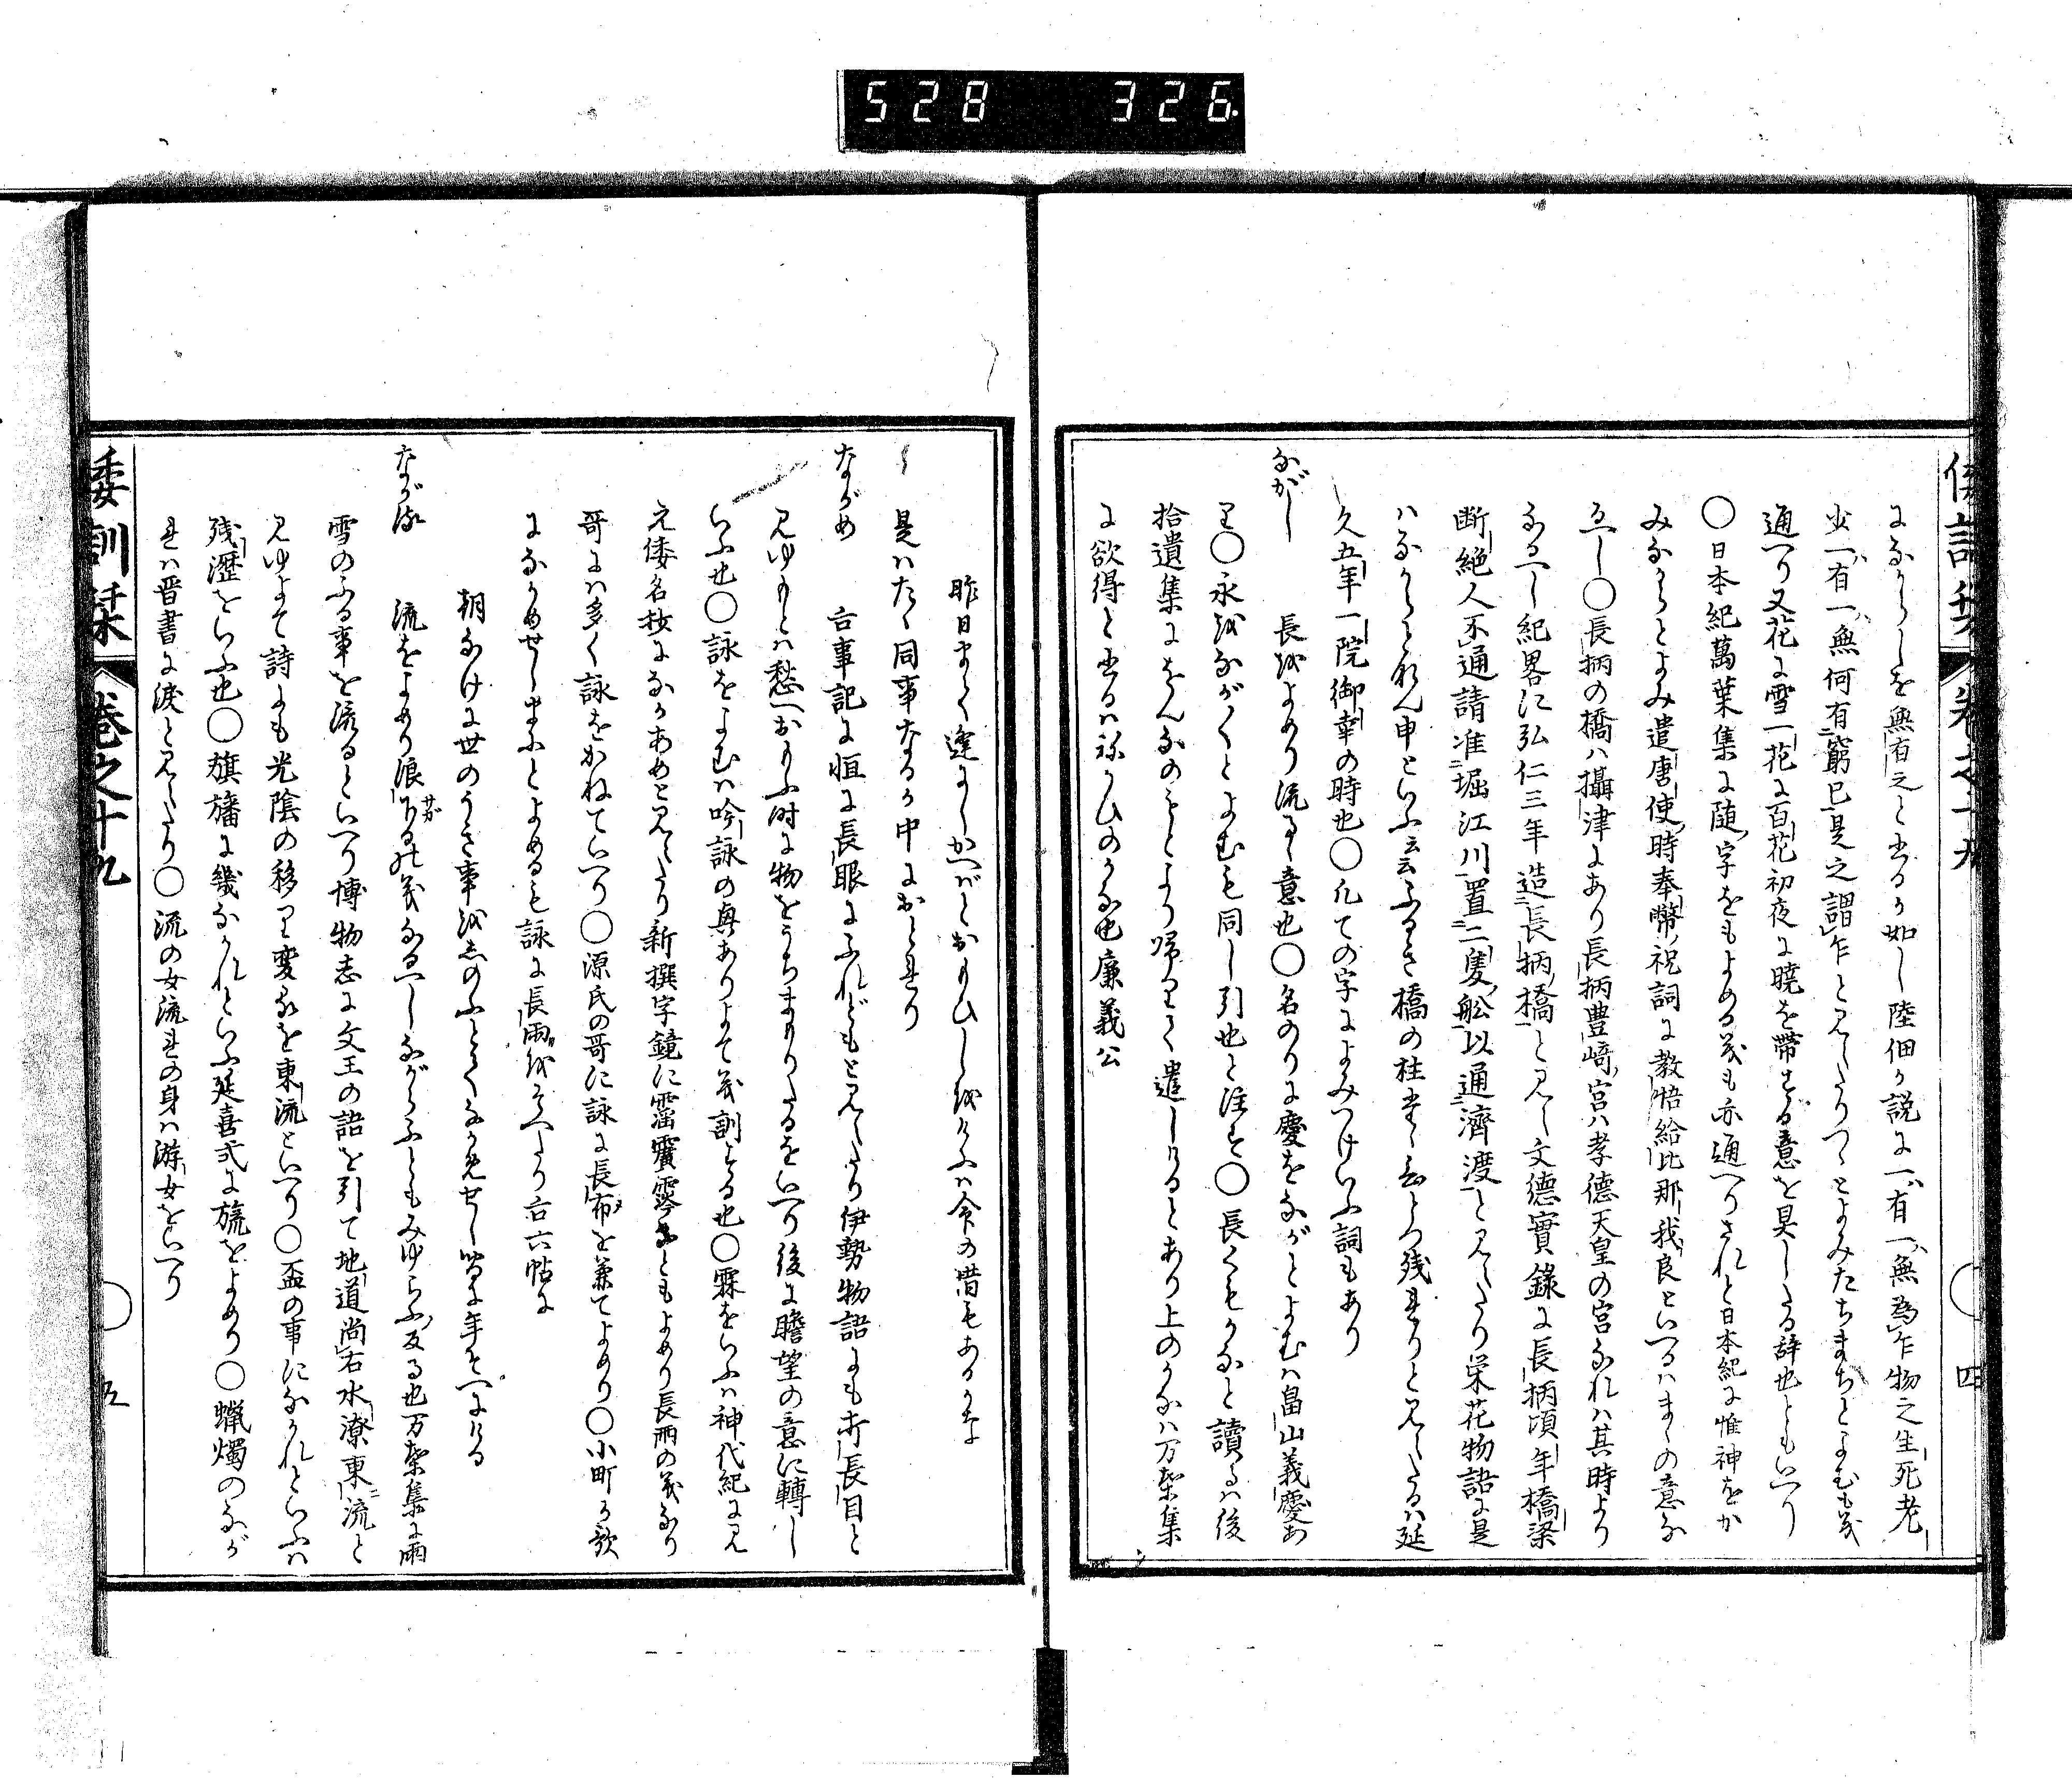 528 326
倭訓栞 巻之十九 四
になからしを無有之と書るか如し陸佃か説に一有一無為乍物之生死老
少一有一無何有窮已是之謂乍と見えたりつゝとよみたちまちとよむも義
通へり又花に雪一花に百花初夜に暁を帯する意を具したる辞也ともいへり
〇日本紀萬葉集に随字をもよめる義も亦通へりされと日本紀に惟神をか
みなからとよみ遣唐使時奉幣祝詞に教悟給比那我良といへるはまゝの意な
るへし〇長柄の橋ハ攝津にあり長柄豊﨑宮ハ孝徳天皇の宮なれハ其時より
なるへし紀畧に弘仁三年造長柄橋と見え文徳實錄に長柄頃年橋梁
断絶人不通請准堀江川置二隻舩以通濟渡と見えたり栄花物語に是
ハなからとなん申といふ云云ふるき橋の柱たゝ一つ残れりと見えたるハ延
久五年一院御幸の時也〇凡ての字によみつけいふ詞もあり
ながし 長をよめり流るゝ意也〇名のりに慶をながとよむハ畠山義慶あ
り〇永をながくとよむも同し引也と注す〇長くもかなと讀るハ後
拾遺集にをんなのもとより帰りて遣しけるとあり上のかなハ万葉集
に欲得と書るハねかひのかな也廉義公
昨日まて逢にしかへばとおもひしをけふハ命の惜もあるかな
是ハたゝ同事なるか中におとれり
ながめ 古事記に恒に長眼にふれどもと見えたり伊勢物語にも亦長目と
見ゆもとハ愁へおもふ時に物をうちまもりたるをいへり後に瞻望の意に轉し
いふ也〇詠をよむハ吟詠の興ありよて義訓する也〇霖をいふハ神代紀に見
え倭名抄になかあめと見えたり新撰字鏡に霤霣霗ともよめり長雨の義なり
哥にハ多く詠をかねていへり〇源氏の哥に詠に長布を兼てよめり〇小町か歌
になかめせしまにとよめるも詠に長雨をそへたり古六帖に
朝なけに世のうき事をしのふとてなかめせしまに年そへにける
ながる 流をよめり浪下るの義なるへしながらふともみゆらふ反る也万葉集に雨
雪のふる事を流るといへり博物志に文王の語を引て地道尚右水潦東流と
見ゆよて詩にも光陰の移り変るを東流といへり〇盃の事になかれといふハ
残瀝をいふ也〇旗旛に幾なかれといふ延喜式に旒をよめり〇蝋燭のなが
れハ晋書に涙と見えたり〇流の女流れの身ハ游女をいへり
倭訓栞 巻之十九 五